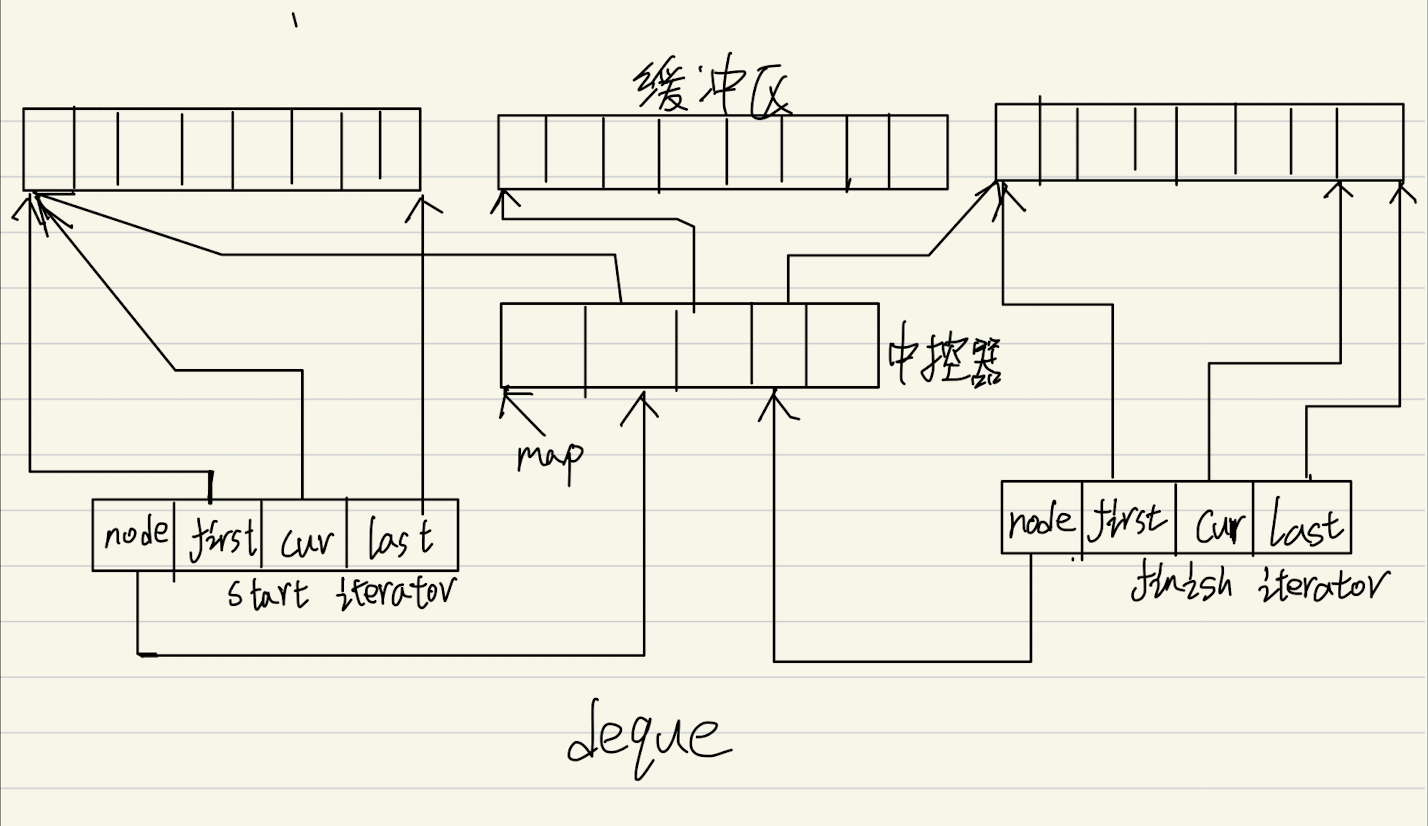 缓冲区
中控器
map
node first cur last
start iterator
node first cur last
finish iterator
deque